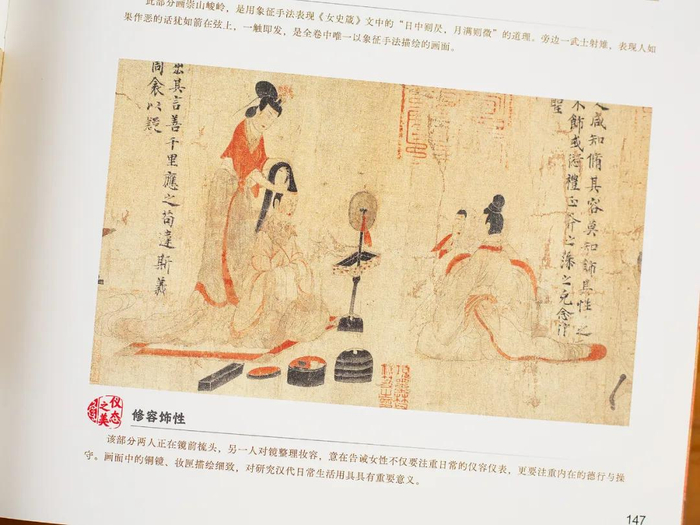 此部分画崇山峻岭，是用象征手法表现《女史箴》文中的“日中则昃，月满则微”的道理。旁边一武士射雉，表现人如
果作恶的话犹如箭在弦上，一触即发，是全卷中唯一以象征手法描绘的画面。
人咸知脩其容莫知飾其性之
不飾或愆禮正斧之藻之克念作
聖
出其言善千里應之苟違斯義
同衾以疑
仪态之美
修容饰性
该部分两人正在镜前梳头，另一人对镜整理妆容，意在告诫女性不仅要注重日常的仪容仪表，更要注重内在的德行与操
守。画面中的铜镜、妆匣描绘细致，对研究汉代日常生活用具具有重要意义。
147